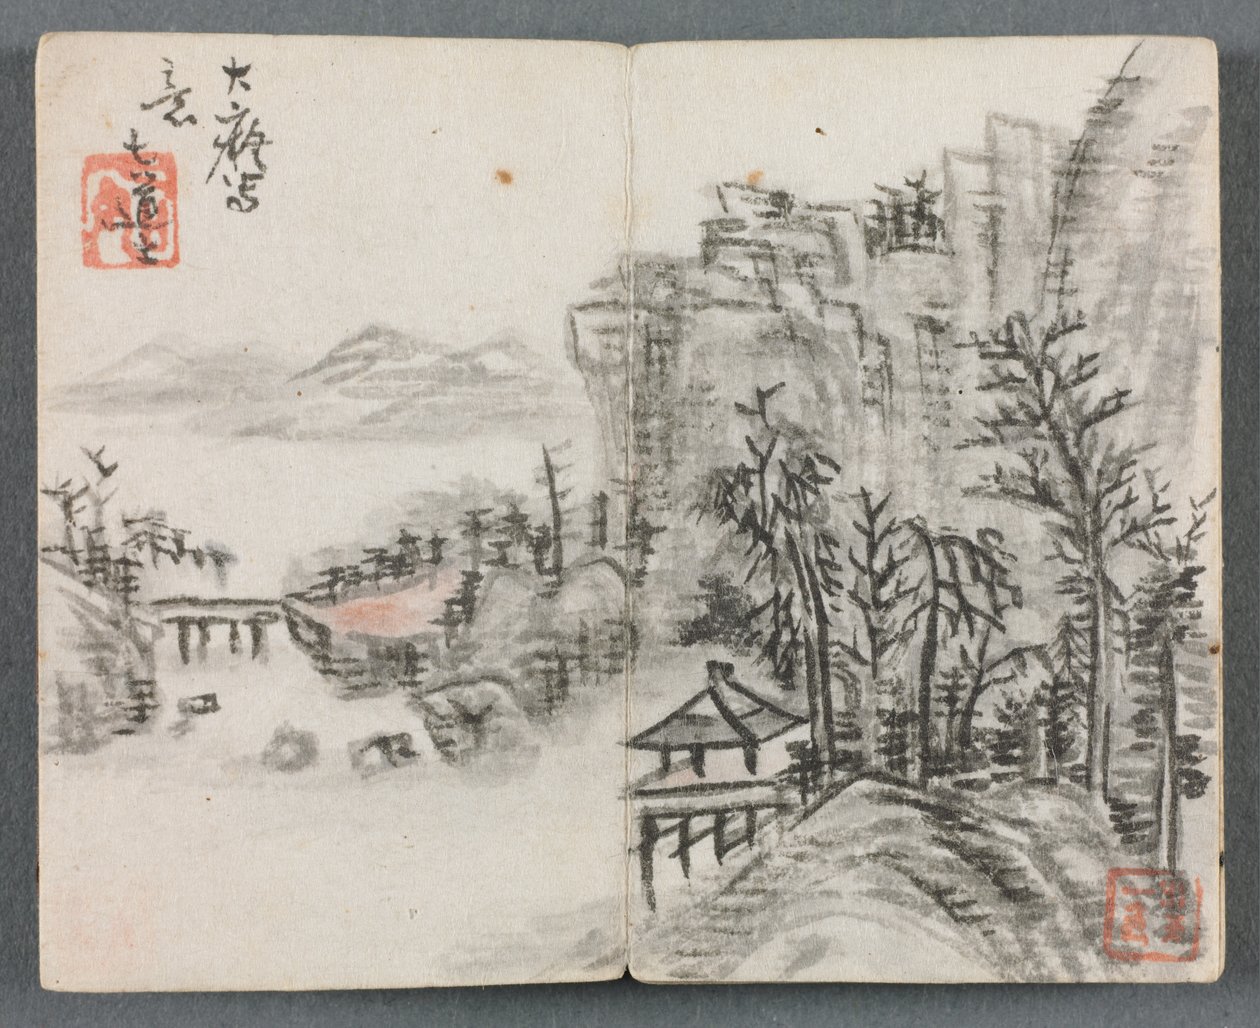 大癡寫
意
七道士